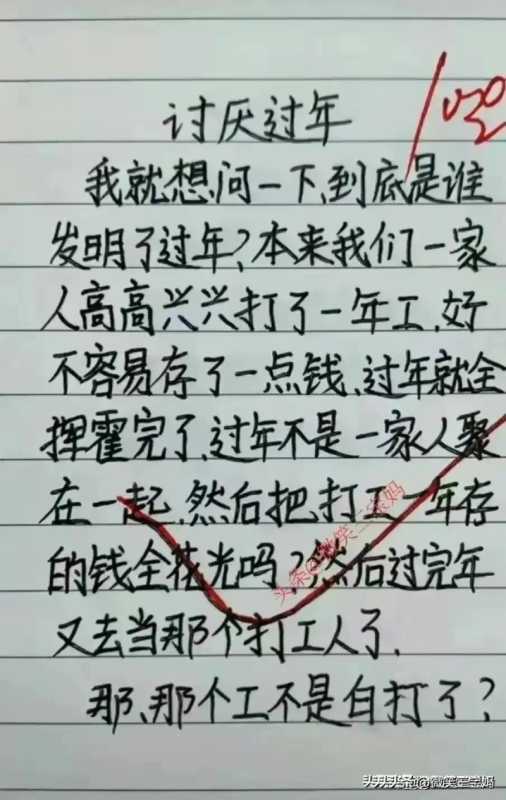 讨厌过年
我就想问一下,到底是谁
发明了过年?本来我们一家
人高高兴兴打了一年工,好
不容易存了一点钱,过年就全
挥霍完了,过年不是一家人聚
在一起,然后把打工一年存
的钱全花光吗?然后过完年
又去当那个打工人了,
那、那个工不是白打了?
头条@微笑二宝妈